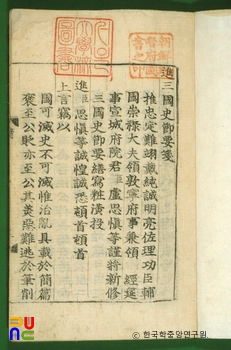 進三國史節要箋
推忠定難翊戴純誠明亮佐理功臣輔
國崇祿大夫領敦寧府事兼領 經筵
事宣城府院君臣盧思愼等謹將新修
三國史節要繕寫粧潢投
進臣思愼等誠惶誠恐頓首頓首
上言竊以
國可滅史不可滅惟治亂具載於簡篇
褒至公貶亦至公其美惡難逃於筆削
大學校
圖書
© 한국학중앙연구원